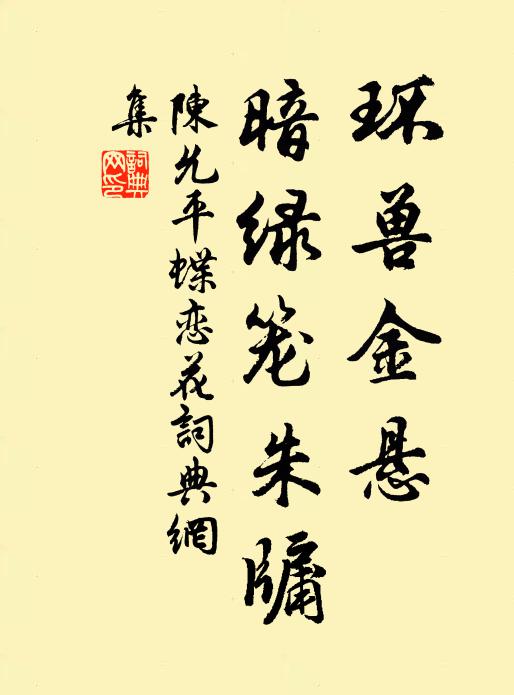 环兽金悬
暗绿笼朱牖
陳允平蝶恋花詞典網
集
詞典
网印